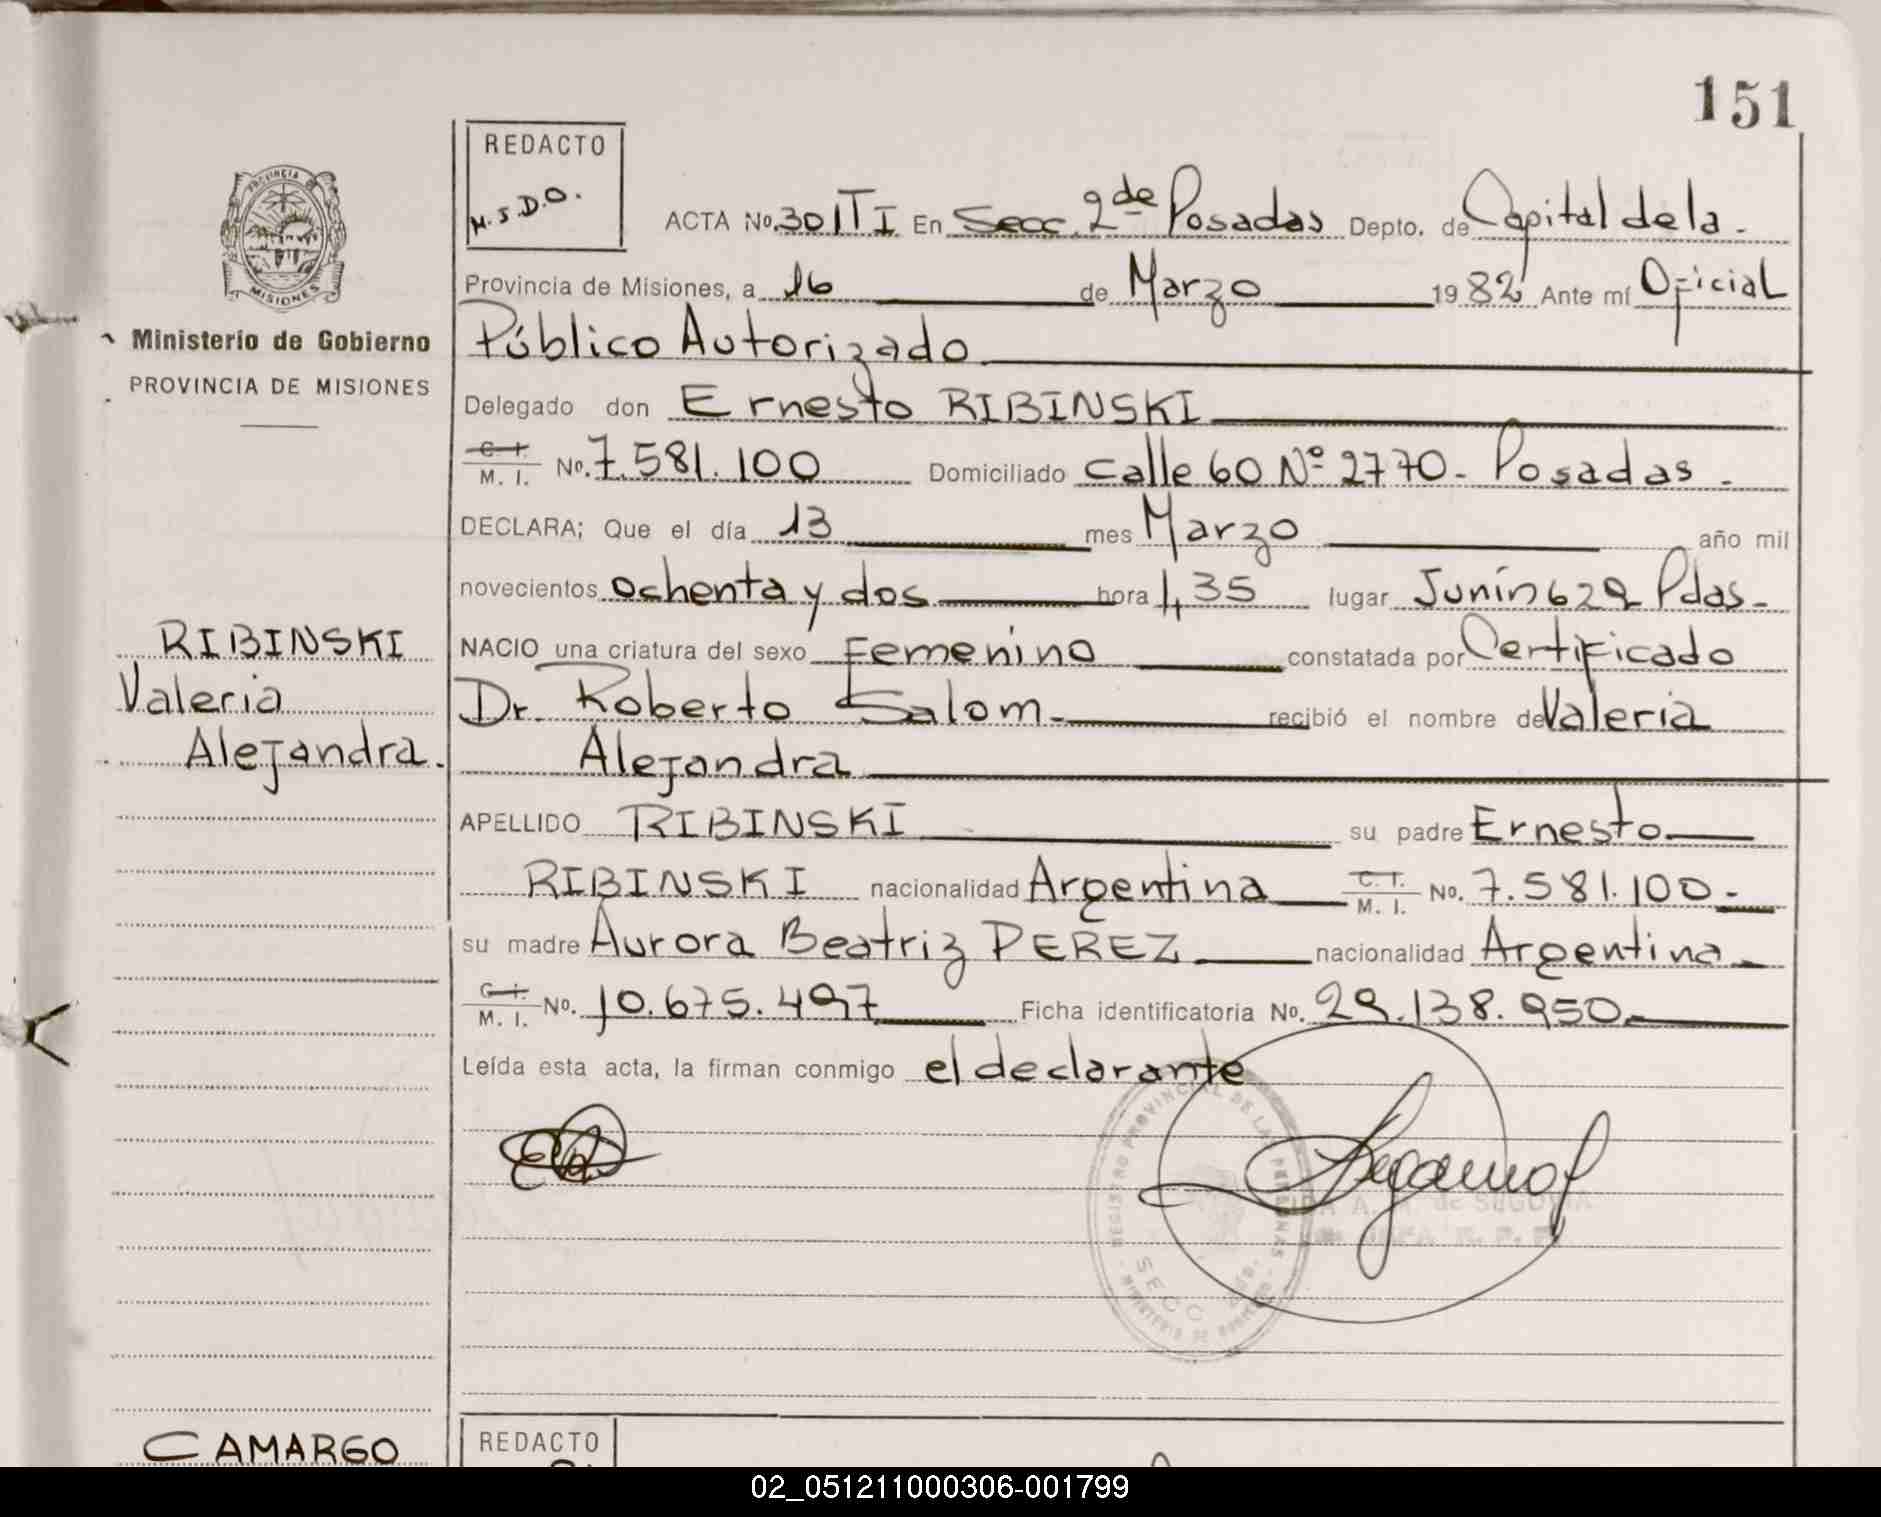 151
REDACTO
M.J.D.O.
PROVINCIA DE
MISIONES
Ministerio de Gobierno
PROVINCIA DE MISIONES
ACTA No. 301 TI En Secc. 2de Posadas Depto. de Capital de la.
Provincia de Misiones, a 16 de Marzo 1982 Ante mí Oficial
Público Autorizado
Delegado don Ernesto RIBINSKI
C. I.
M. I. No. 7.581.100 Domiciliado Calle 60 Nº 2770 - Posadas.
DECLARA; Que el día 13 mes Marzo año mil
novecientos ochenta y dos hora 1,35 lugar Junín 629 Pdas-
NACIO una criatura del sexo Femenino constatada por Certificado
Dr. Roberto Salom. recibió el nombre de Valeria
Alejandra
APELLIDO RIBINSKI su padre Ernesto
RIBINSKI nacionalidad Argentina C. I.
M. I. No. 7.581.100-
su madre Aurora Beatriz PEREZ nacionalidad Argentina
C. I.
M. I. No. 10.675.497 Ficha identificatoria No. 29.138.950
Leída esta acta, la firman conmigo el declarante
RIBINSKI
Valeria
Alejandra.
REGISTRO PROVINCIAL DE LAS PERSONAS
SECC
MINISTERIO DE GOBIERNO
de SEGOVIA
CAMARGO
REDACTO
02_051211000306-001799